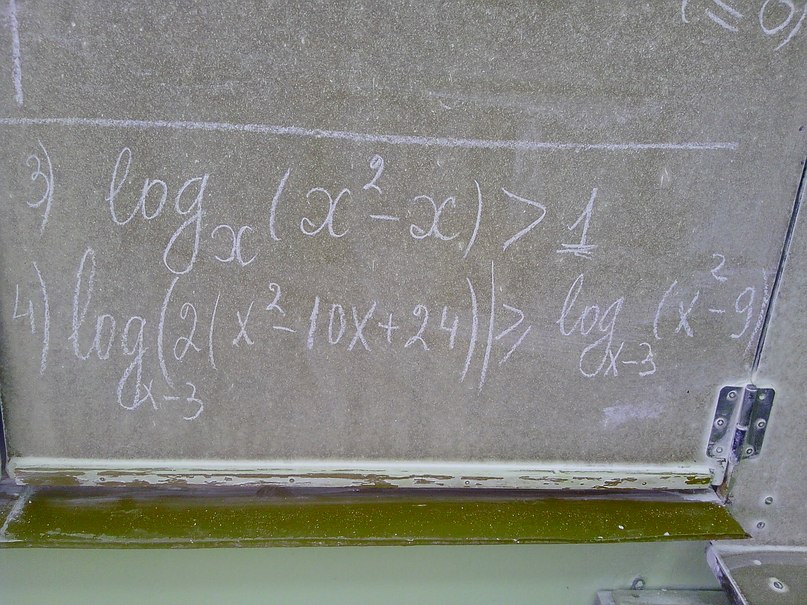 (≤ 0)
3) logₓ(x² - x) > 1
4) logₓ₋₃(2(x² - 10x + 24)) ≥ logₓ₋₃(x² - 9)